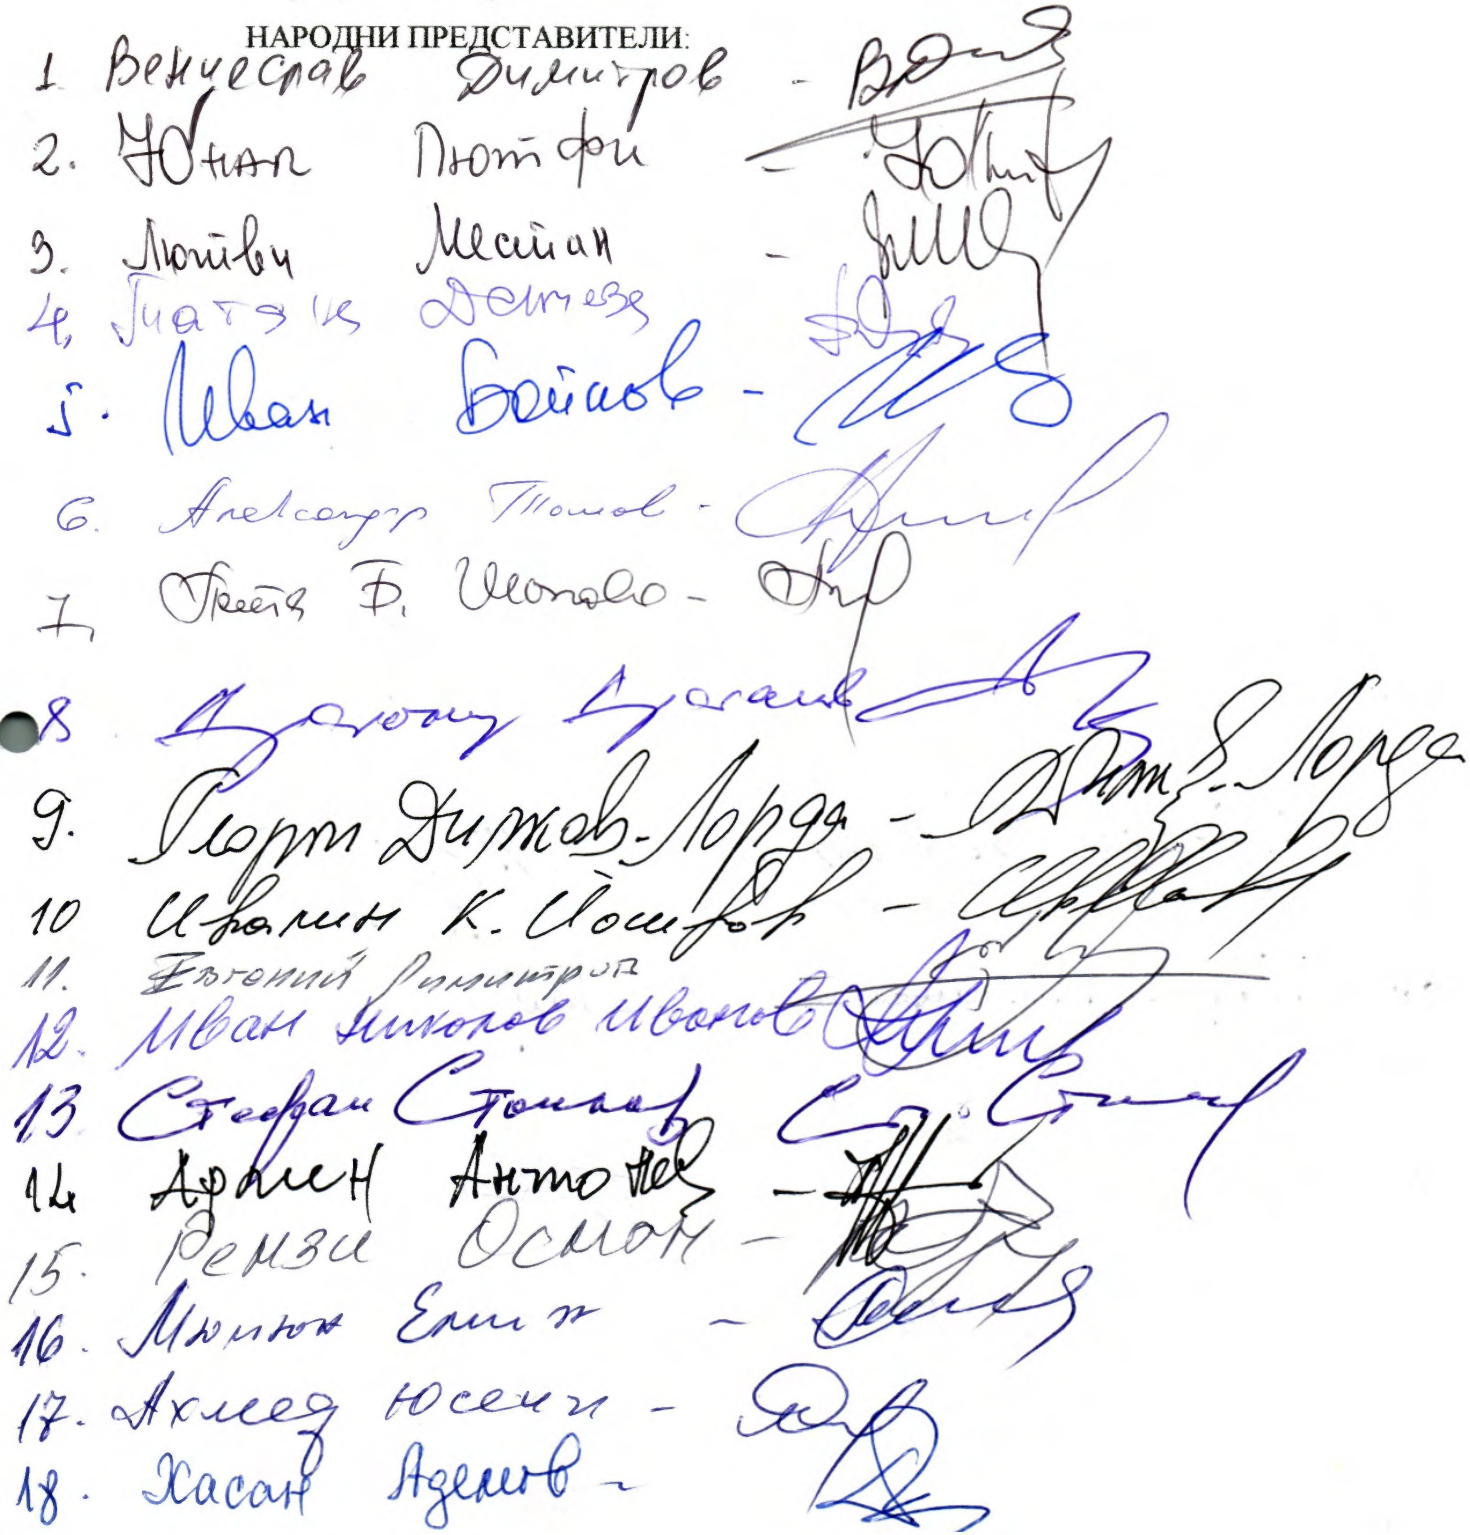 НАРОДНИ ПРЕДСТАВИТЕЛИ:
1. Венцеслав Димитров -
2. Юнал Лютфи -
3. Лютви Местан -
4. Татяна Дончева
5. Иван Бойков -
6. Александър Томов -
7. Петя Б. -
8 Драгомир Драганов
9. Георги Димов - Лорда - Лорда
10 Ивалин К. Йосифов -
11. Евгений Димитров
12. Иван Николов Иванов
13 Стефан Стоилов Ст. Стоилов
14 Армен Антонов -
15. Ремзи Осман -
16. Мюмюн Емин -
17. Ахмед Юсеин -
18. Хасан Адемов -